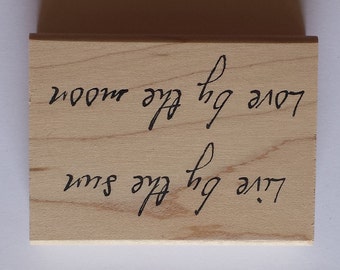 Live by the sun
Love by the moon